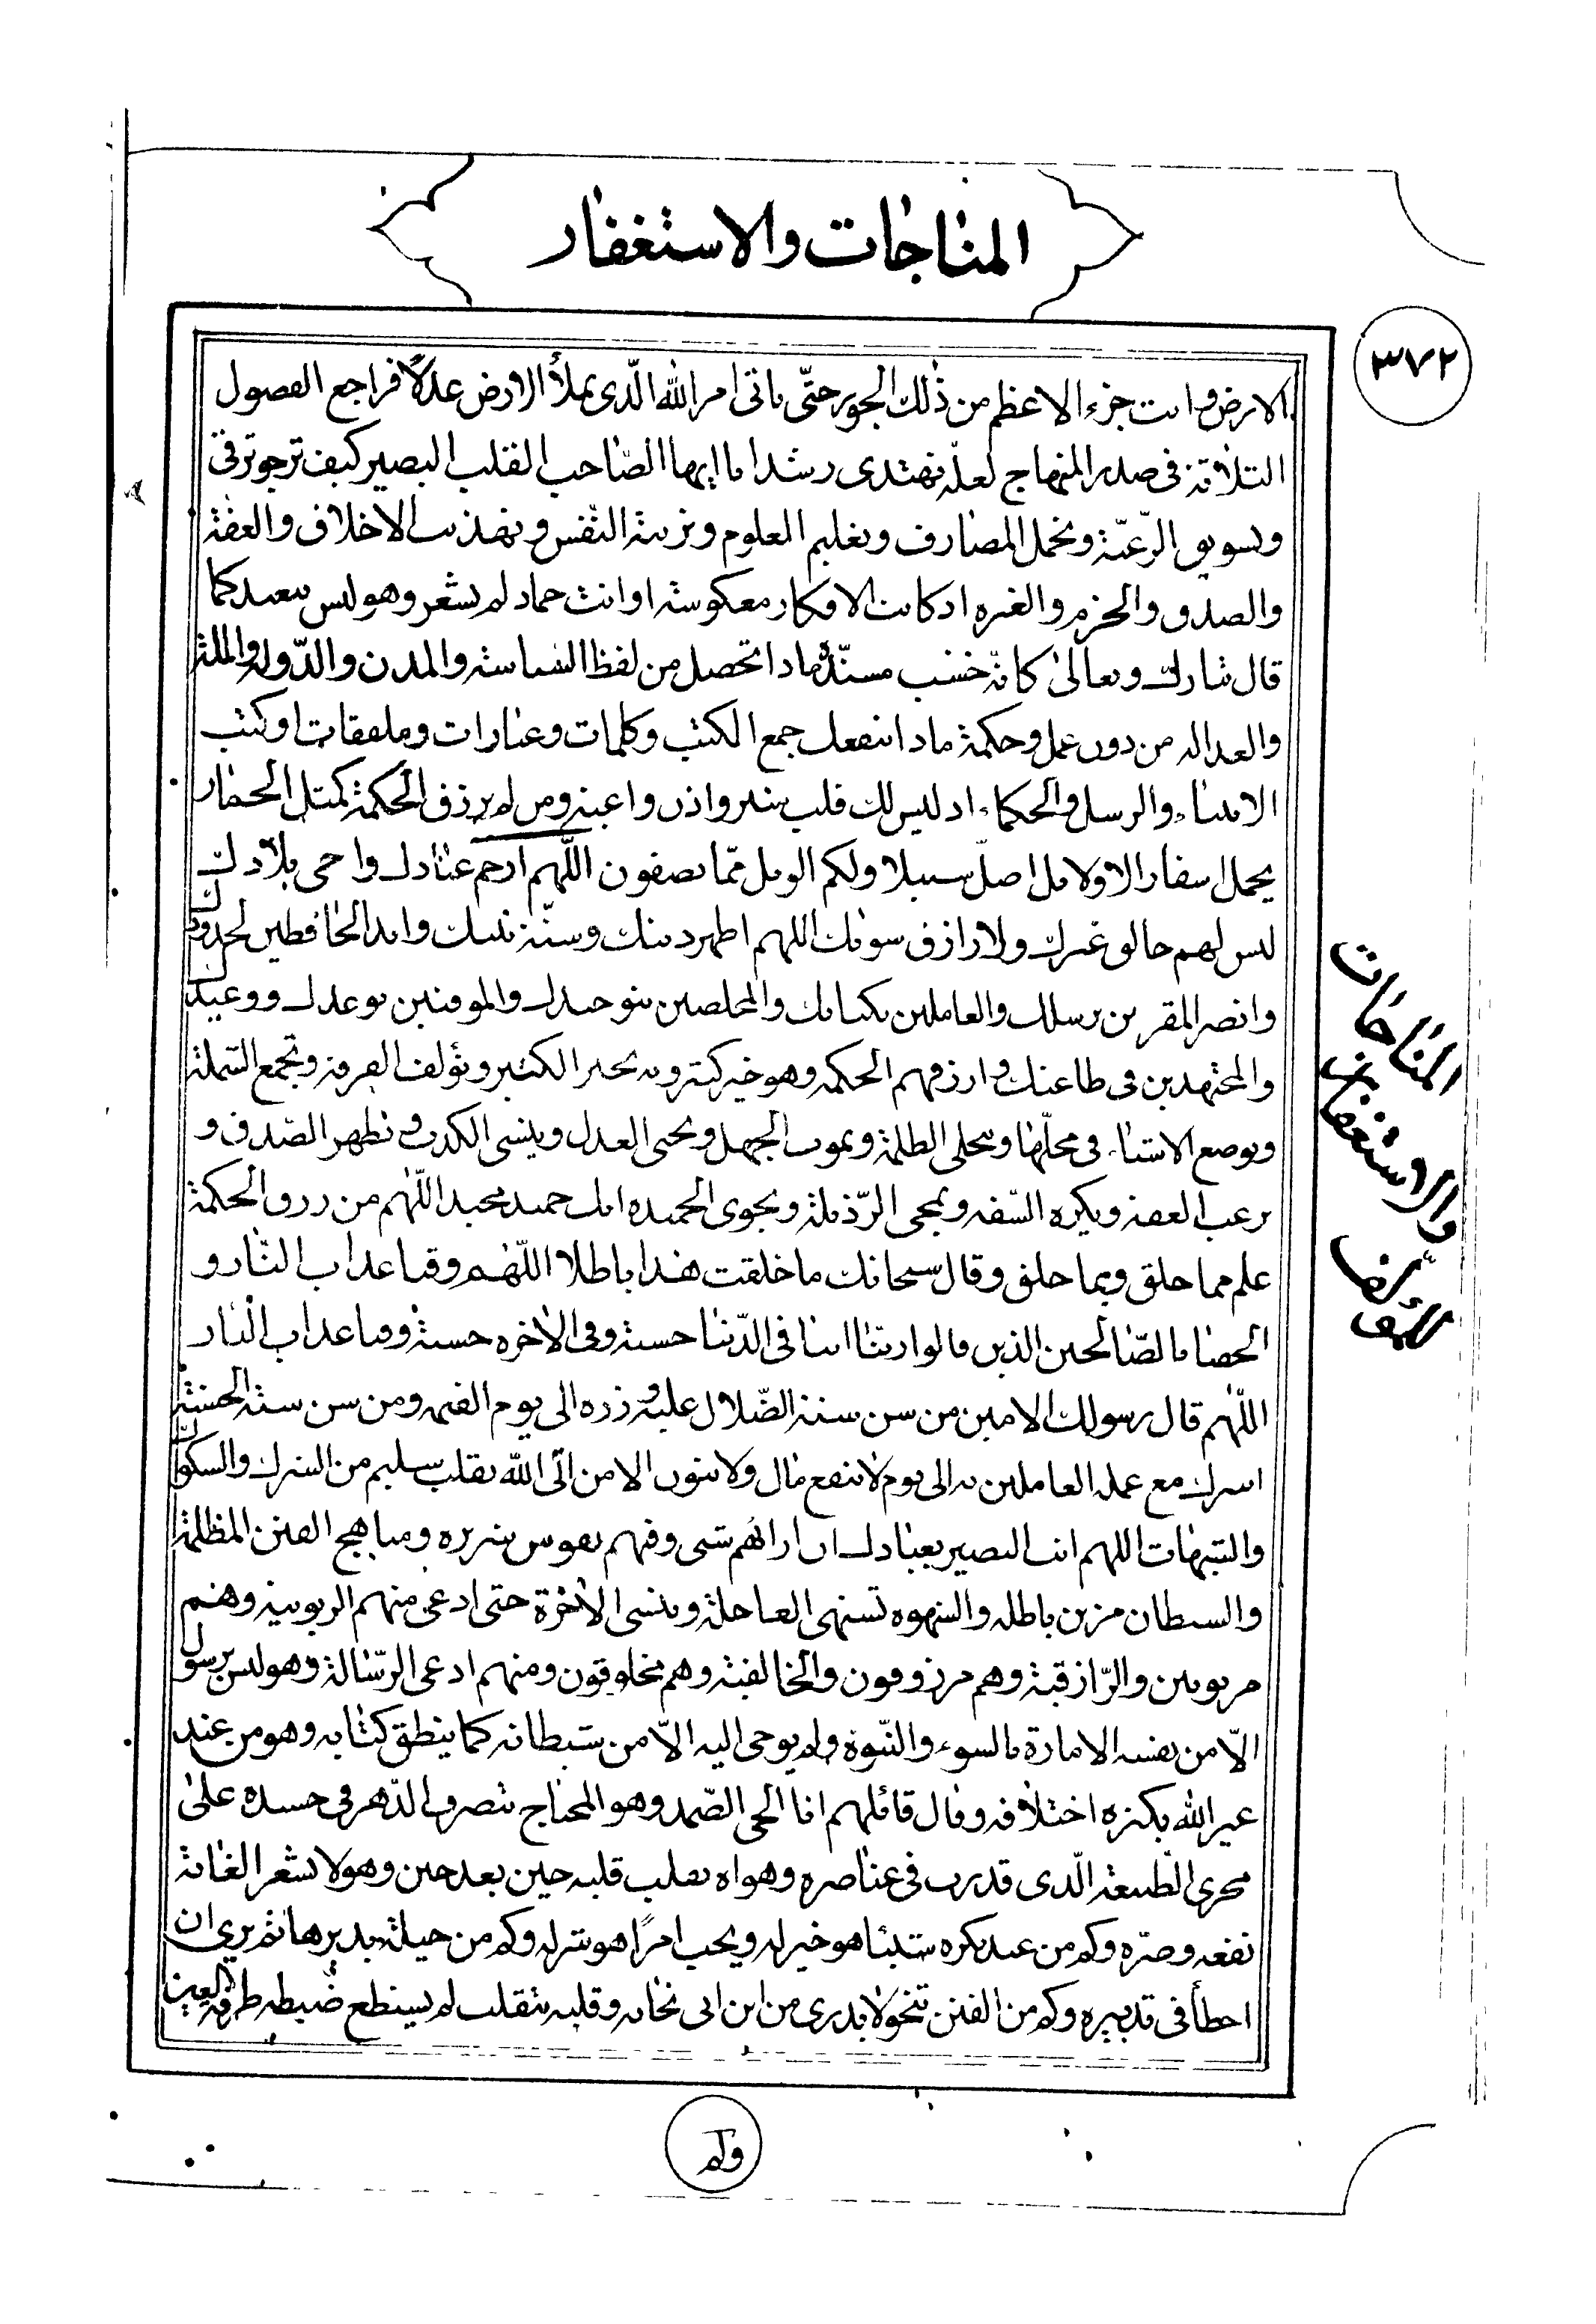 المناجات والاستغفار
٣٧٢
الارض وانت جزء الاعظم من ذلك الجور حتّى ياتى امر الله الّذى يملأ الارض عدلاً فراجع الفصول
التلاقة فى صدر المنهاج لعلّه تهتدى رشدا ما ايها الصّاحب القلب البصير كيف ترجو ترقى
وتسويق الرّعيّة وتحمل المصارف وتعليم العلوم وتربية النفس وتهذيب الاخلاق والعفة
والصدق والحزم والغيره اذ كانت الافكار معكوسة او انت جماد لم تشعر وهو ليس ببعيد كما
قال تبارك وتعالى كانّه خشب مسنّدة ماذا تحصل من لفظ السياسة والمدن والدّوله والملة
والعداله من دون عمل وحكمة ماذا تنفعك جمع الكتب وكلمات وعبارات وملفقات او كتب
الانبياء والرسل والحكماء اذ ليس لك قلب منير واذن واعية ومن لم يرزق الحكمة كمثل الحمار
يحمل اسفار الاولا بل اضلّ سبيلا ولكم الويل ممّا تصفون اللّهم ارحم عبادك واحى بلادك
ليس لهم خالق غيرك ولا رازق سواك اللهم اظهر دينك وسنّة نبيك وايد الحافظين لحدودك
وانصر المقرين برسلك والعاملين بكتابك والمخلصين بتوحيدك والموقنين بوعدك ووعيدك
والمجتهدين فى طاعتك وارزقهم الحكمه وهو خير كثير وبه يحير الكثير وتؤلف الفرقة وتجمع الشملة
ويوضع الاشياء فى محلّها وينجلى الظلمة ويموت الجهل ويحيى العدل وينسى الكذب وتظهر الصّدق و
يرغب العفة ويكره السّفه ويمحى الرّذيلة ويحوى الحميده انك حميد مجيد اللّهم من رزق الحكمة
علم مما خلق وبما خلق وقال سبحانك ما خلقت هذا باطلا اللّهم وقنا عذاب النّار و
الحقنا بالصّالحين الذين قالوا ربّنا اتنا فى الدّنيا حسنة وفى الآخره حسنة وقنا عذاب النّار
اللّهم قال رسولك الامين من سن سنة الضّلال عليه وزره الى يوم القيمه ومن سن سنة الحسنة
اشرك مع عمله العاملين به الى يوم لا ينفع مال ولا بنون الا من اتى الله بقلب سليم من الشرك والشكوك
والشبهات اللهم انت البصير بعبادك ان ارائهم شتى وفيهم نفوس شريره ومباهج الفتن المظلمة
والشيطان مزين باطله والشهوه تشتهى العاجلة وينسى الآخرة حتى ادعى منهم الربوبية وهم
مربوبين والرّازقية وهم مرزوقون والخالقية وهم مخلوقون ومنهم ادعى الرّسالة وهو ليس برسول
الّا من نفسه الامارة بالسوء والنّبوة ولم يوحى اليه الّا من شيطانه كما ينطق كتابه وهو من عند
غير الله بكثرة اختلافه وقال قائلهم انا الحى الصّمد وهو المحتاج بتصرف الدّهر فى جسده على
مجرى الطبيعة الّذى قدرت فى عناصره وهواه يقلب قلبه حين بعد حين وهو لا يشعر الغاية
نفعه وضرّه وكم من عبد يكره شيئا هو خير له ويحب امرًا هو شر له وكم من حيلة يدبرها ثم يرى ان
اخطأ فى تدبيره وكم من الفتن تنحو لا يدرى من اين اتى نجاته وقلبه يتقلب لم يستطع ضبطه طرفة العين
وله
المناجات
والاستغفار
للمؤلف